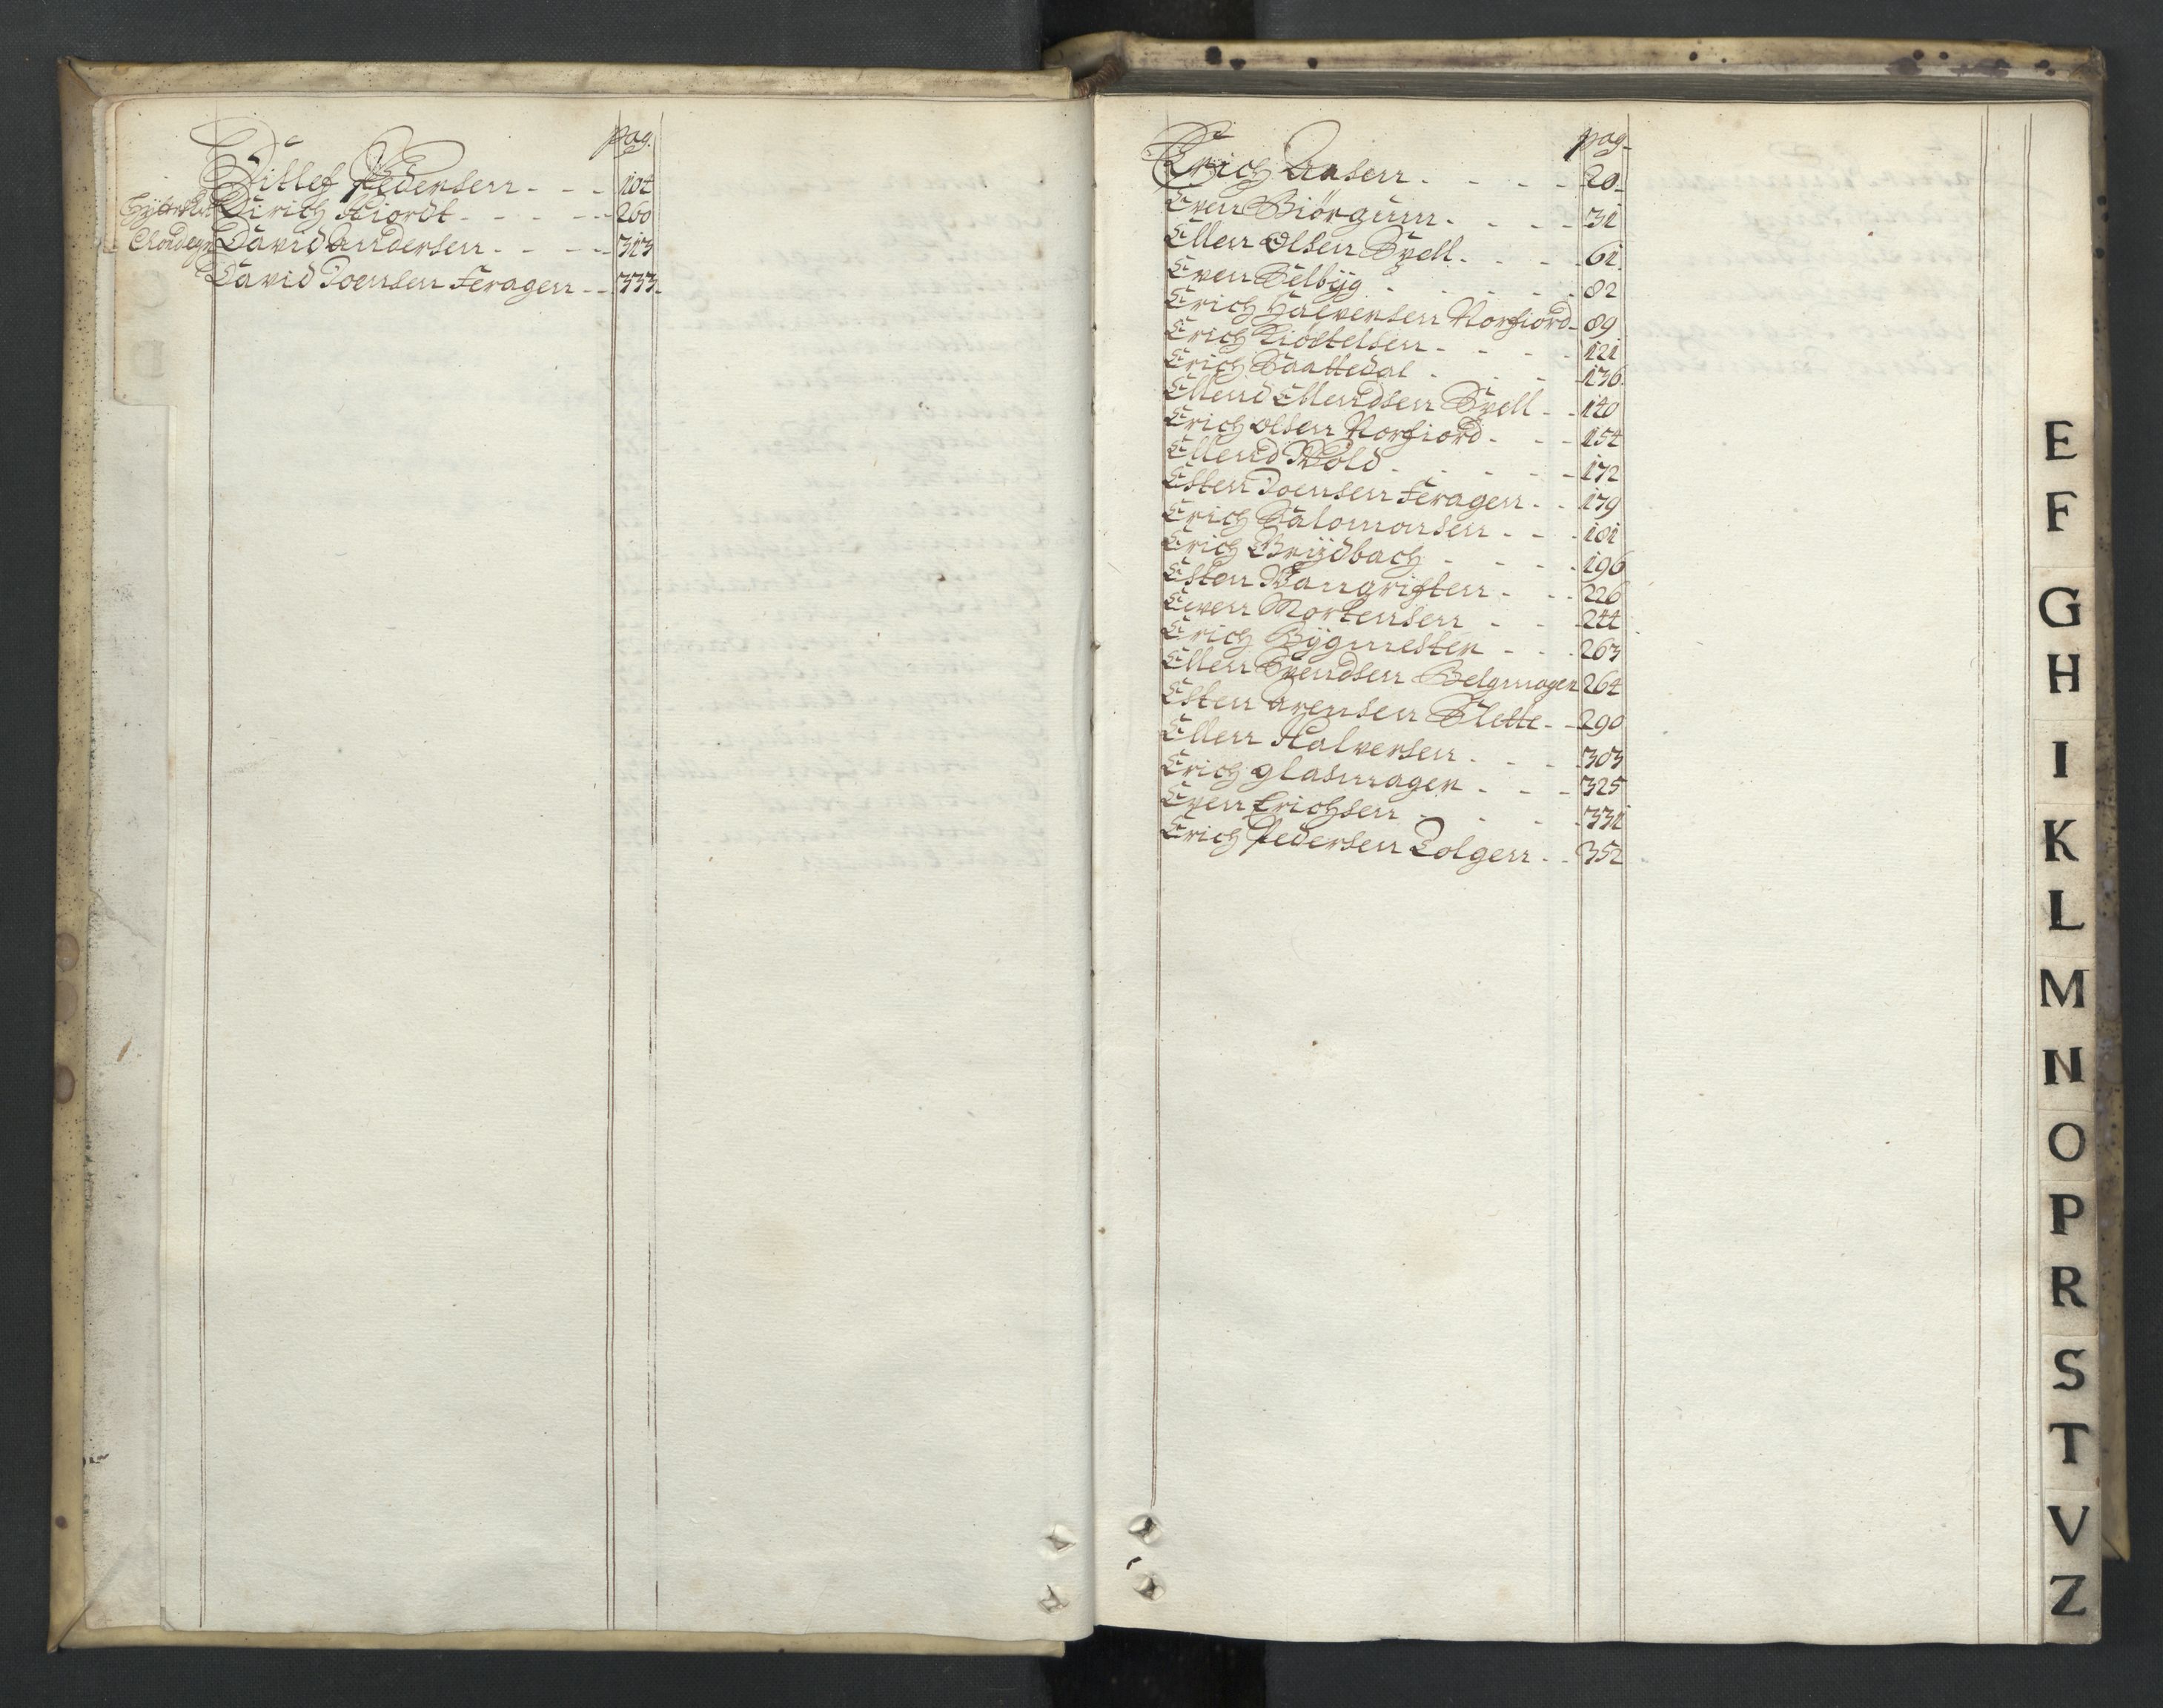 pag.
Ditlef Pedersen - - - 104
Dirich Hiordt - - - - 260
David Andersen - - - - 313
David Joensen Feragen - - 333
pag.
Erich Aasen - - - - 20
Even Biörgum - - - - 31
Ellen Olsen Svell - - - 61
Even Selbÿg - - - - - 82
Erich Halvensen Norfiord - 89
Erich Kiöstelsen - - - - 121
Erich Saattedal - - - 136
Ellend Ellendsen Svell - - 140
Erich Olsen Norfiord - - - 154
Ellend Wold - - - - - 172
Esten Joensen Feragen - - 179
Erich Salomonsen - - - 181
Erich Brÿdbach - - - - 196
Esten Wangrøften - - - 226
Even Mortensen - - - 244
Erich Bÿgmester - - - 263
Ellen Svendsen Belgmager 264
Esten Arensen Slette - - 290
Ellen Halversen - - - - 303
Erich Glasmager - - - 325
Even Erichsen - - - - 331
Erich Pedersen Tolgen - - 352
E
F
G
H
I
K
L
M
N
O
P
R
S
T
V
Z